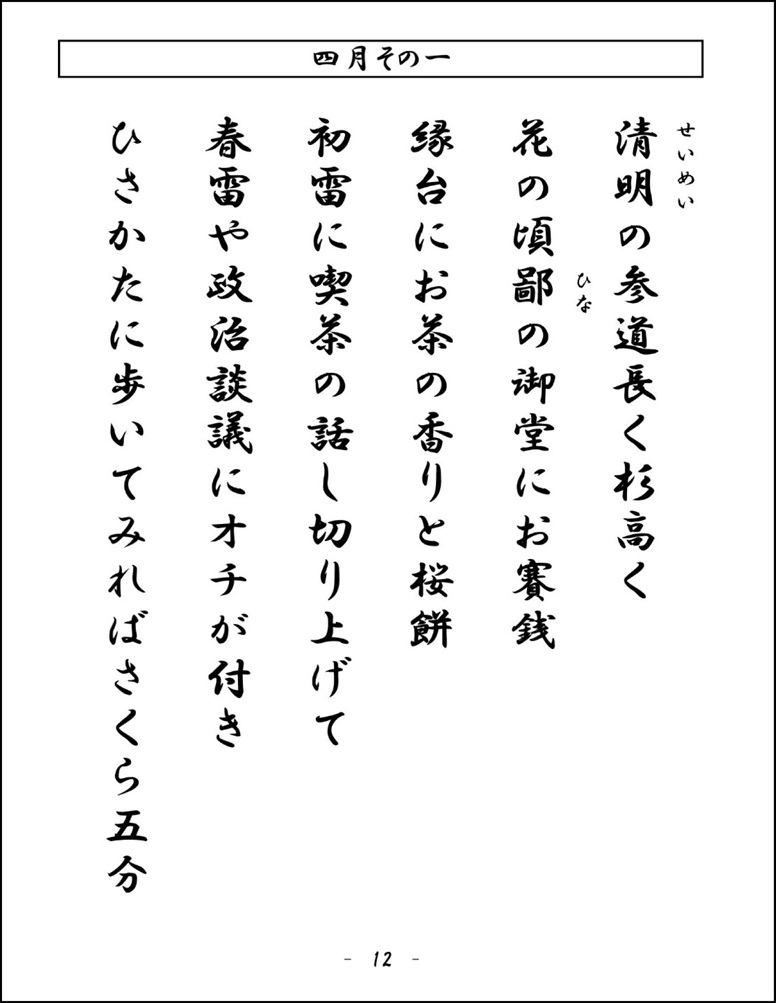 四月その一
せいめい
清明の参道長く杉高く
ひな
花の頃鄙の御堂にお賽銭
縁台にお茶の香りと桜餅
初雷に喫茶の話し切り上げて
春雷や政治談議にオチが付き
ひさかたに歩いてみればさくら五分
- 12 -